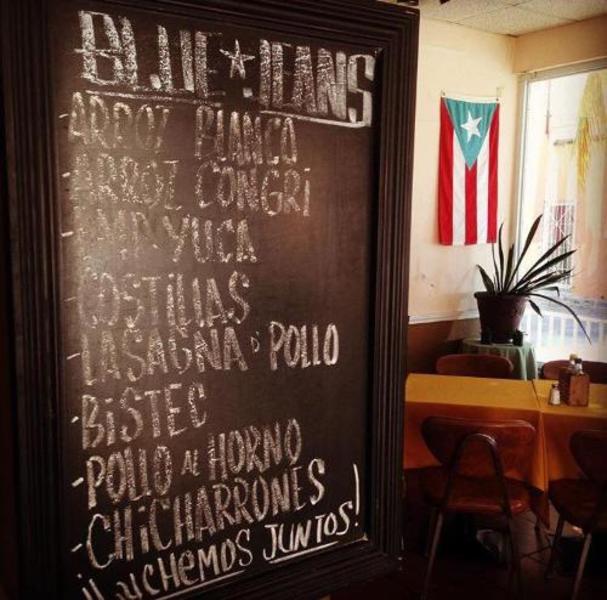 BLUE ★ JEANS
-ARROZ BLANCO
-ARROZ CONGRI
- YUCA
-COSTILLAS
-LASAGNA D' POLLO
-BISTEC
-POLLO AL HORNO
-CHICHARRONES
¡LUCHEMOS JUNTOS!